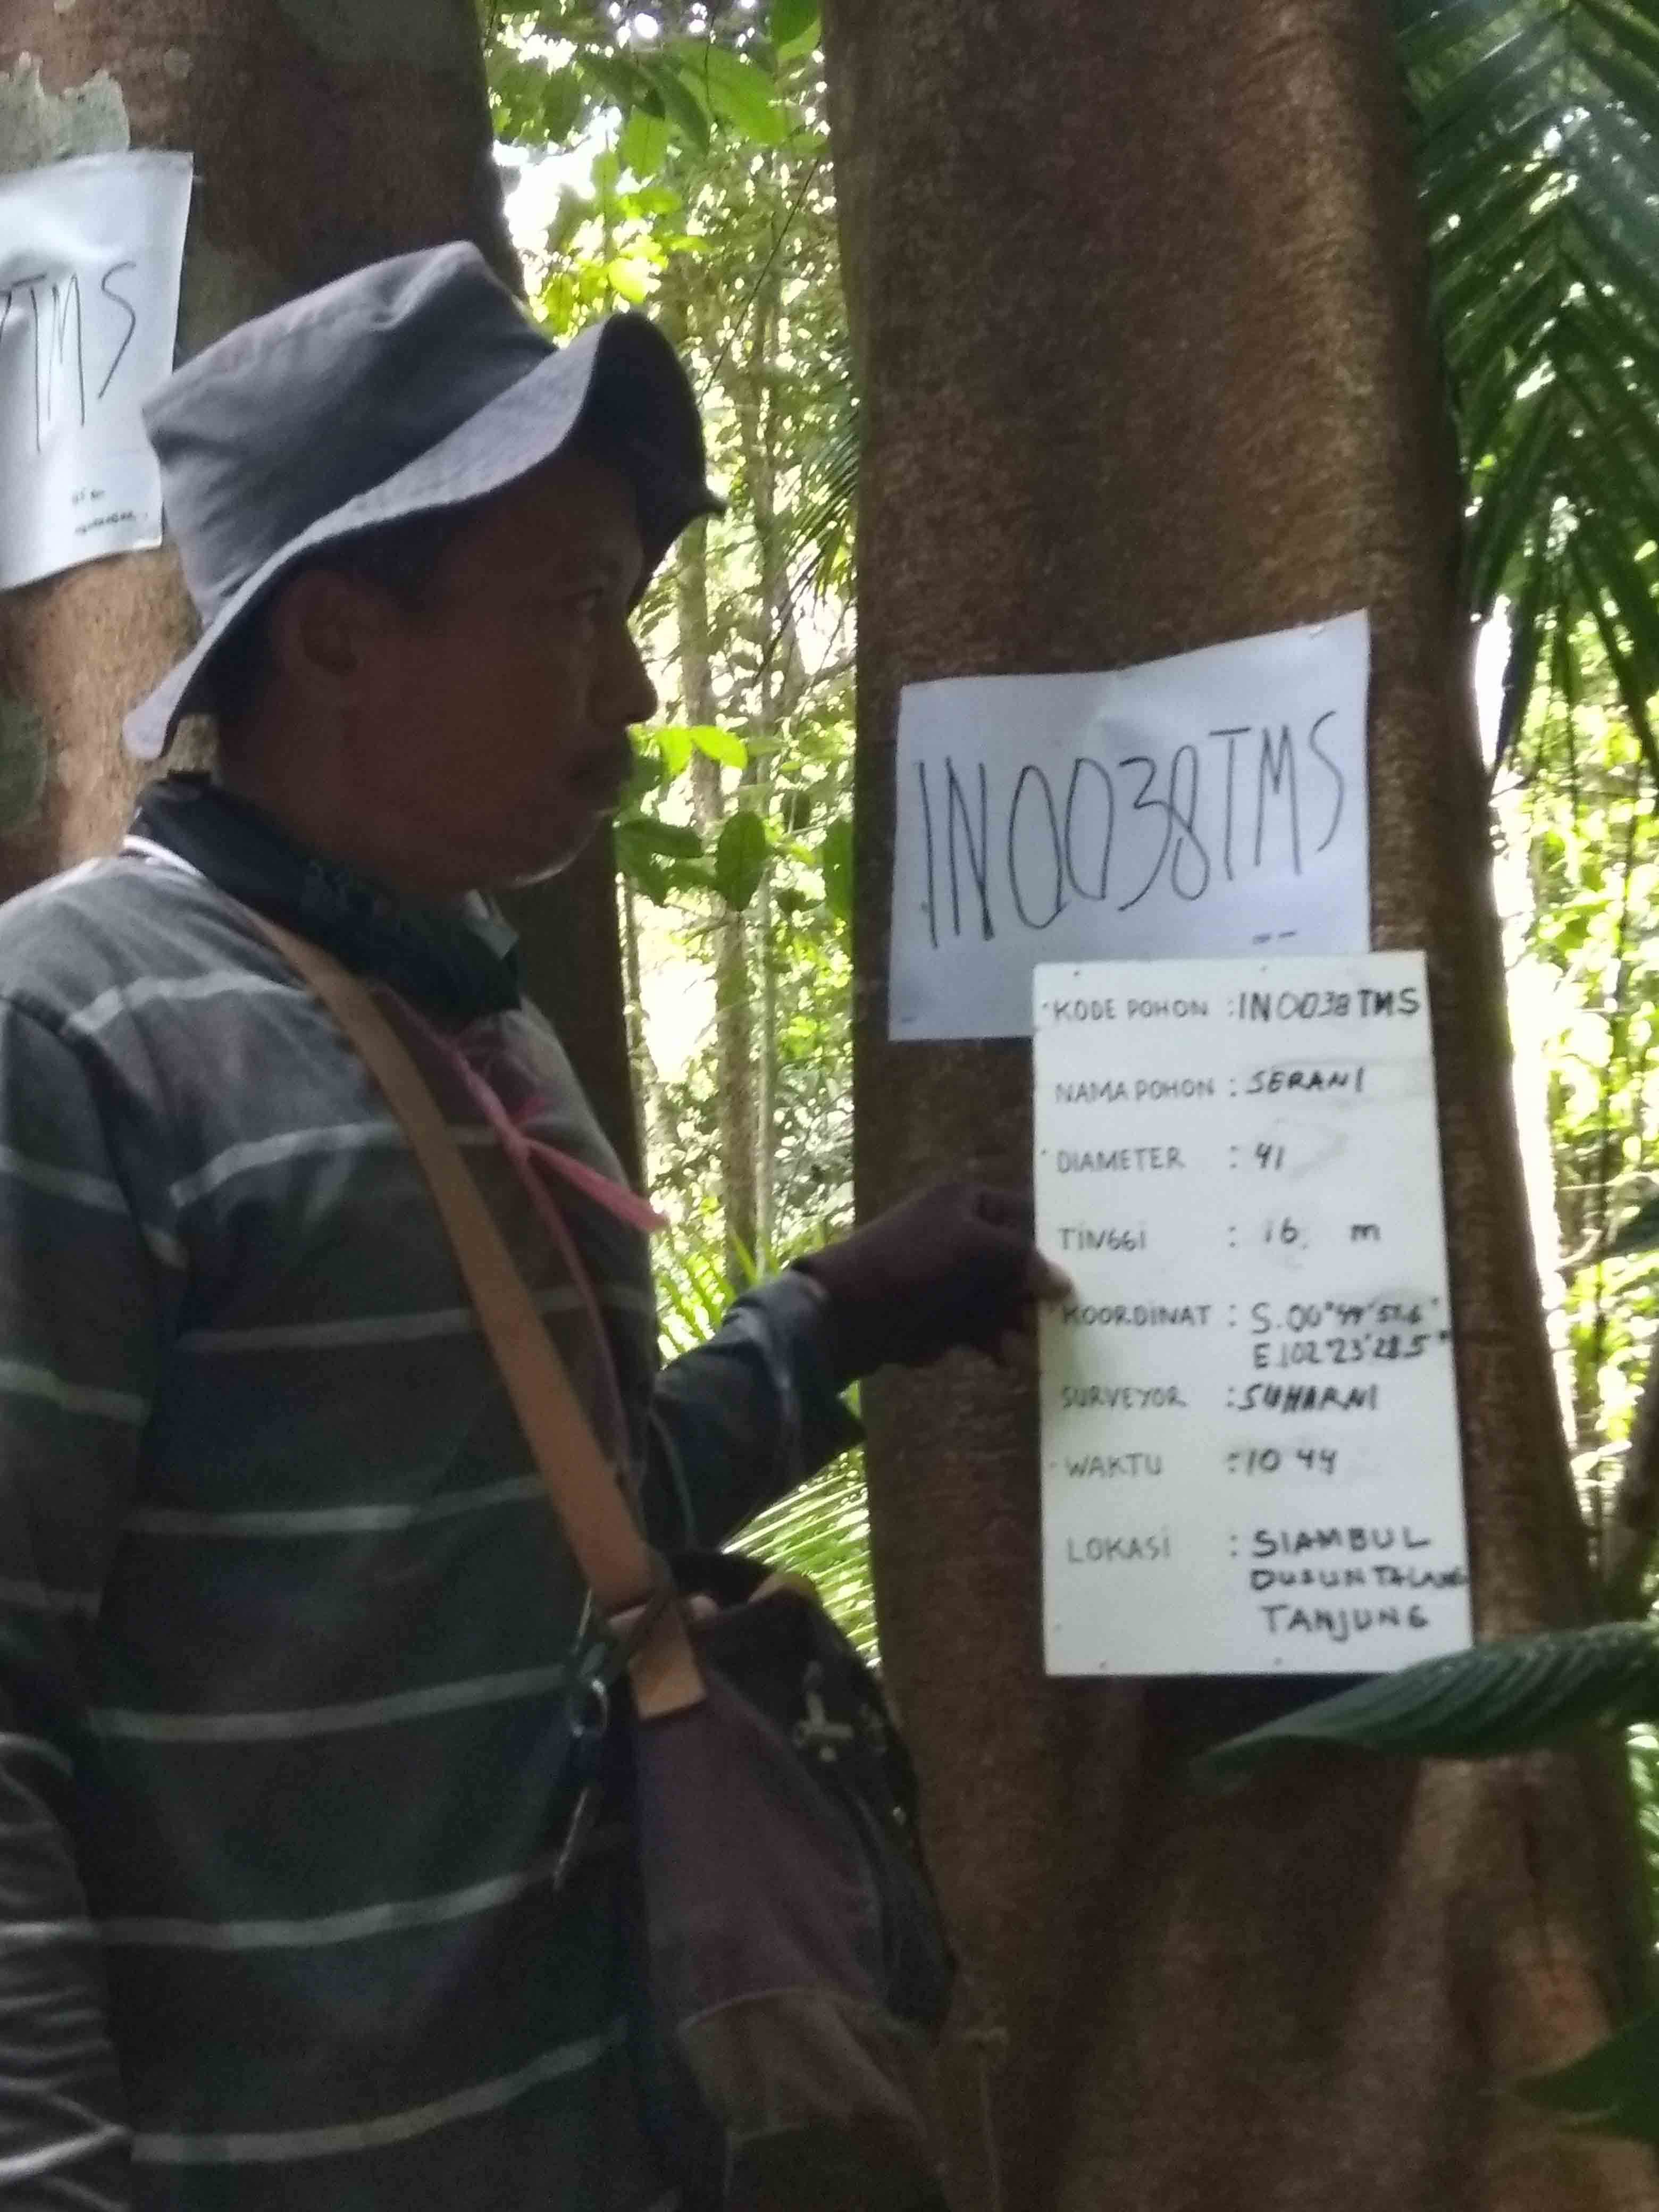 TMS
IN0038TMS
KODE POHON : IN0038TMS
NAMA POHON : SERANI
DIAMETER : 41
TINGGI : 16 m
KOORDINAT : S.00°44'
E.102°23'28.5"
SURVEYOR : SUHARNI
WAKTU : 10 44
LOKASI : SIAMBUL
DUSUN TALANG
TANJUNG